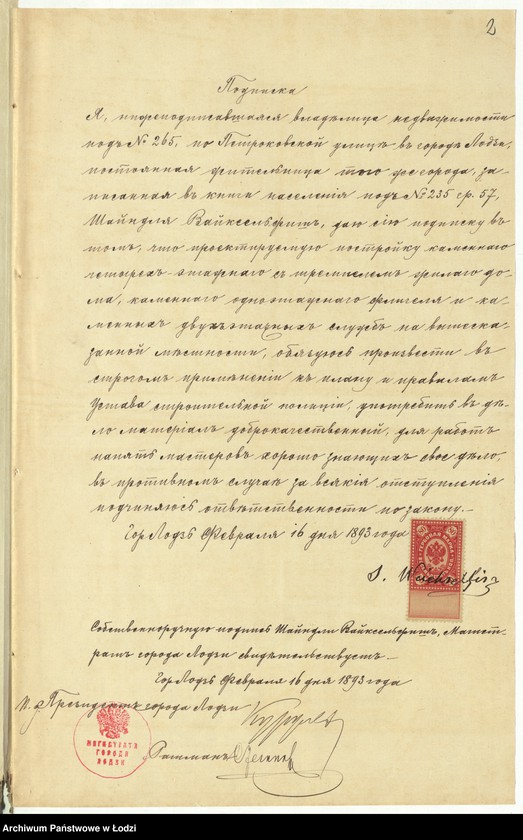 2
Подписка
Я, нижеподписавшаяся владѣлица недвижимости
подъ № 265, по Петроковской улицѣ въ городѣ Лодзи,
постоянная жительница того же города, за-
писанная въ книгѣ населенія подъ № 235 ср. 57,
Шайндля Вайксельфишъ, даю сію подписку въ
томъ, что проектируемую постройку каменнаго
четырехъ-этажнаго съ жилаго до-
ма, каменнаго одноэтажнаго флигеля и ка-
менныхъ двухъэтажныхъ службъ на вышеска-
занной мѣстности, обязуюсь произвести въ
строгомъ примѣненіи къ плану и правиламъ
Устава строительной полиціи, употребить въ дѣ-
ло матеріалъ доброкачественный, для работъ
нанять мастеровъ хорошо знающихъ свое дѣло,
въ противномъ случаѣ за всякія отступленія
подчиняюсь отвѣтственности по закону.
Гор. Лодзь Февраля 16 дня 1893 года
S.
Собственноручную подпись Шайндли Вайксельфишъ, Магист-
ратъ города Лодзи свидѣтельствуетъ
Гор. Лодзь Февраля 16 дня 1893 года
П. Президентъ города Лодзи
Ратманъ
МАГИСТРАТА
ГОРОДА
ЛОДЗИ
Archiwum Państwowe w Łodzi